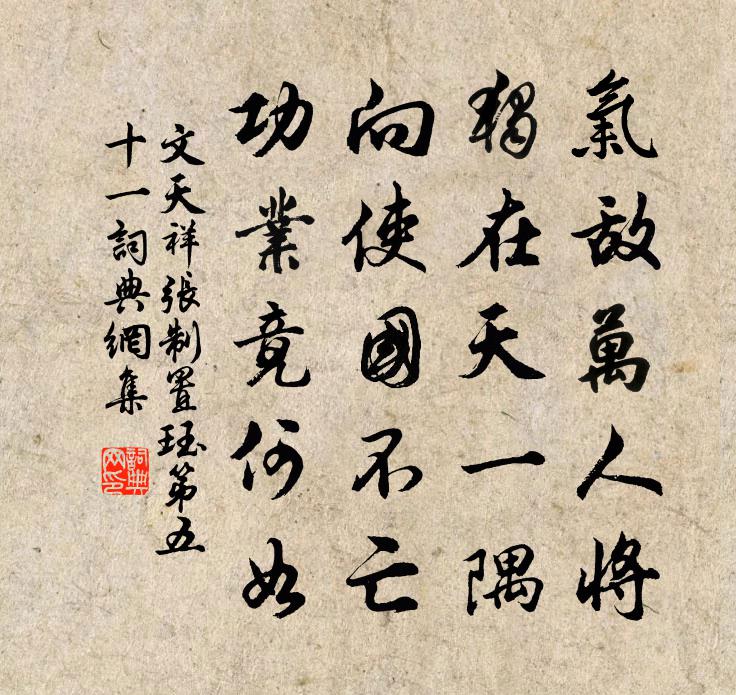 氣敵萬人將
獨在天一隅
向使國不亡
功業竟何如
文天祥張制置珏第五
十一詞典網集
詞典
网印